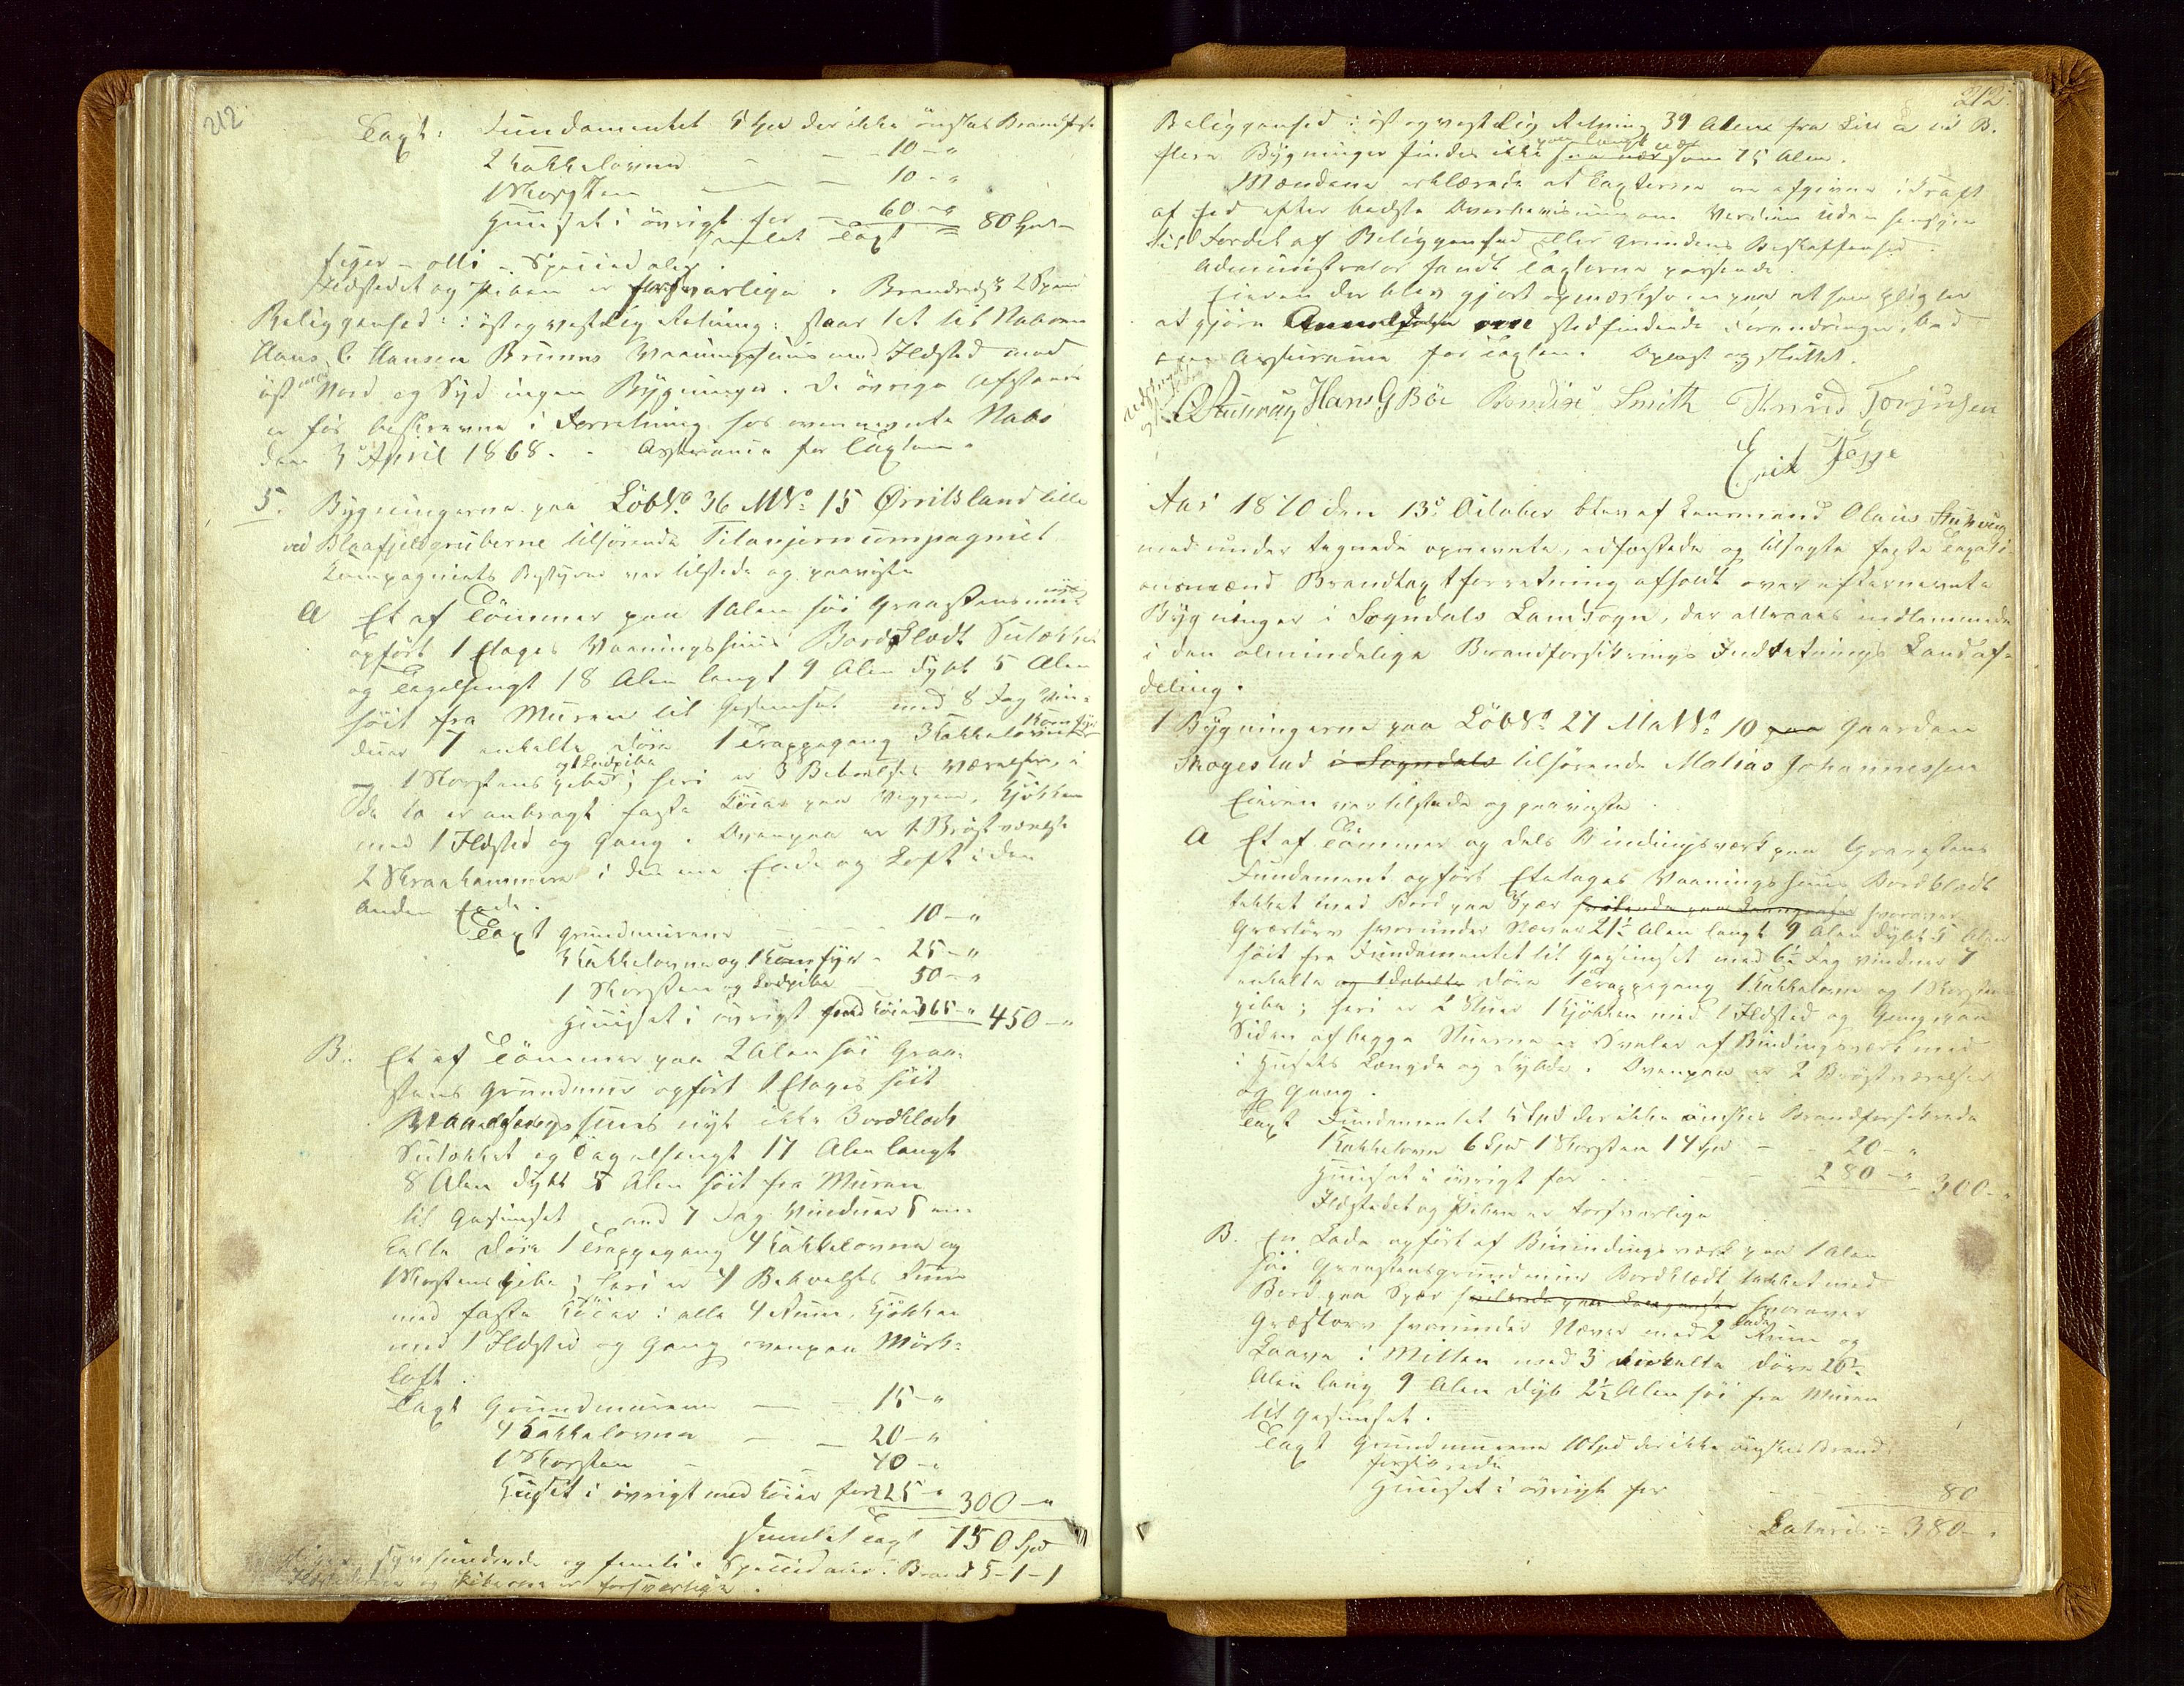 212
Taxt: Fundamentet 5 Spd der ikke önskes Brandfors
2 Kakkelovne — — 10 — "
1 Skorsten — — 10 — "
Huuset i övrigt for — 60 — "
Samlet Taxt = 80 Spd —
siger — otti — Speciedaler.
Ildstedet og Piben er forsvarlige. Brandredsk 2 Spand
Beliggenhed: i öst og vestlig Retning: staar tet til Naboen
Hans C Hansen Bruuns Vaaningshuus med Ildsted mod
öst mod Nord og Syd ingen Bygninger. De övrige Afstande
er för beskrevne i Forretning hos ovennevnte Nabo
den 3 April 1868. Assurance for Taxten.
5. Bygningerne paa LöbNo. 36 MNo: 15 Örsitsland lille
ved Blaafjeldgruberne tilhörende Titanjerncompagniet
Compagniets Bestyrer var tilstede og paaviste
A Et af Tömmer paa 1 Alen höi Graastensmuur nyt
opfört 1 Etages Vaaningshuus Bordklædt Sutækket
og Tagelhengt 18 Alen langt 9 Alen dybt 5 Alen
höit fra Muren til Gesimset med 8 Fag Vin-
duer 7 enkelte Döre 1 Trappegang 3 Kakkelovne 1 Komfyr
og 1 Skorstenspibe og 1 Ledpibe; heri er 3 Beboelses Værelser, i
de to er anbragt faste Köier paa Veggene, Kjökken
med 1 Ildsted og Gang. Ovenpaa er 1 Bröstværelse
2 Skraakammere i den ene Ende og Loft i den
anden Ende.
Taxt Grundmurene — — 10 — "
3 Kakkelovne og 1 Komfyr — 25 — "
1 Skorsten og Ledpibe — 50 — "
Huuset i övrigt med Köier 365 — " 450 — "
B. Et af Tömmer paa 2 Alen höi Graa-
stens Grundmuur opfört 1 Etages höit
Vaaningshuus nyt ikke Bordklædt
Sutækket og Tagelhengt 17 Alen langt
8 Alen dybt 5 Alen höit fra Muren
til Gesimset med 7 Fag Vinduer 5 en-
kelte Döre 1 Trappegang 4 Kakkelovne og
1 Skorstenspibe; heri er 4 Beboelses Rum
med faste Köier i alle 4 Rum, Kjökken
med 1 Ildsted og Gang ovenpaa Mörk-
loft.
Taxt Grundmurene — — 15 — "
4 Kakkelovne — — 20 — "
1 Skorsten — — 40 — "
Huset i övrigt med Köier for 225 — " 300 — "
Samlet Taxt 750 Spd
siger syvhundrede og femti Speciedaler. Brand 5-1-1
Ildstederne og Piberne er forsvarlige.
212.
Beliggenhed: öst og vestlig Retning 39 Alen fra Litr a til B.
flere Bygninger findes ikke saa nær som 75 Alen.
Mændene erklærede at Taxterne ere afgivne i Kraft
af Eed efter bedste Overbeviisning om Verdien uden Hensyn
til Fordel af Beliggenhed eller Grundens Beskaffenhed.
Administrator fandt Taxterne passende.
Eieren der blev gjort opmærksom paa at han pligter
at gjöre Anmeldelse om stedfindende Forandringer, bad
om Assurance for Taxten. Oplæst og sluttet.
OStuevig Hans G Böe Bendix Smith Knud Torjusen
Erik Fosse
Aar 1870 den 13de October blev af Lensmand Olaus Stuevig
med under tegnede opnevnte, edfæstede og tilsagte faste Taxati-
onsmænd Brandtaxtforretning afholdt over efternevnte
Bygninger i Sogndals Landsogn, der attraaes indlemmede
i den almindelige Brandforsikrings Indretnings Landaf-
deling.
1 Bygningerne paa LöbNo 27 MatNo: 10 paa Gaarden
Skogestad i Sogndals tilhörende Matias Johannessen
Eieren var tilstede og paaviste.
A Et af Tömmer og dels Bindingsværk paa Graastens
Fundament opfört Etetages Vaaningshuus Bordklædt
tækket med Bord paa Spær hvorover
Græstörv hvorunder Næver 21½ Alen langt 9 Alen dybt 5 Alen
höit fra Fundamentet til Gesimset med 6½ Fag Vinduer 7
enkelte og 1 dobbelte Döre 1 Trappegang 1 Kakkelovn og 1 Skorstens
pibe; heri er 2 Stuer 1 Kjökken med 1 Ildsted og Gang, paa
Siden af begge Stuerne er Svaler af Bindingsværk med
i Husets Længde og Dybde. Ovenpaa er 2 Bröstværelser
og Gang.
Taxt Fundamentet 5 Spd der ikke önskes Brandforsikrede
1 Kakkelovn 6 Spd 1 Skorsten 14 Spd — 20 — "
Huuset i övrigt for — — 280 — " 300 — "
Ildstedet og Piben er forsvarlige
B. En Lade opfört af Bindingsværk paa 1 Alen
höi Graastensgrundmuur Bordklædt tækket med
Bord paa Spær hvorover
Græstörv hvorunder Næver med 2 Lade Rum og
Laave i Midten med 3 enkelte Döre 26½
Alen lang 9 Alen dyb 2½ Alen höi fra Muren
til Gesimset.
Taxt Grundmurene 10 Spd der ikke önskes Brand
forsikrede
Huuset i övrigt for — — 80
Lateris = 380 — "